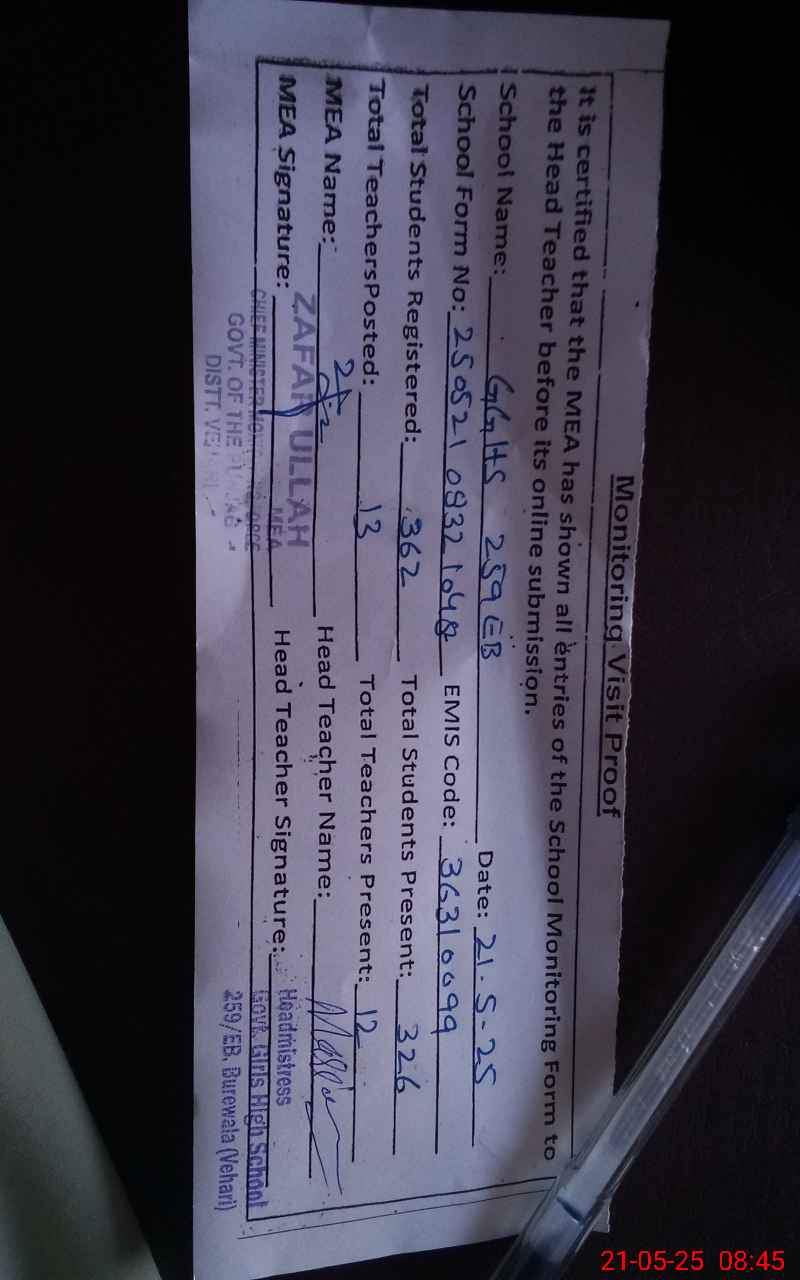 Monitoring Visit Proof
It is certified that the MEA has shown all entries of the School Monitoring Form to
the Head Teacher before its online submission.
School Name: GGHS 259 EB Date: 21-5-25
School Form No: 25052108321048 EMIS Code: 36310099
Total Students Registered: 362 Total Students Present: 326
Total TeachersPosted: 13 Total Teachers Present: 12
MEA Name: Head Teacher Name:
ZAFAR ULLAH
MEA
MEA Signature: Head Teacher Signature:
CHIEF MINISTER MONITORING FORCE
GOVT. OF THE PUNJAB
DISTT. VEHARI
Headmistress
Govt. Girls High School
259/EB, Burewala (Vehari)
21-05-25 08:45